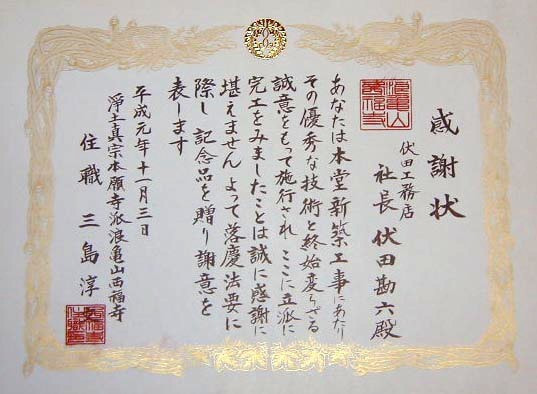 感謝状
伏田工務店
社長 伏田勘六殿
あなたは本堂新築工事にあたり
その優秀な技術と終始変らざる
誠意をもって施行され ここに立派に
完工をみましたことは誠に感謝に
堪えません よって落慶法要に
際し 記念品を贈り謝意を
表します
平成元年十一月三日
浄土真宗本願寺派浪亀山西福寺
住職 三島淳